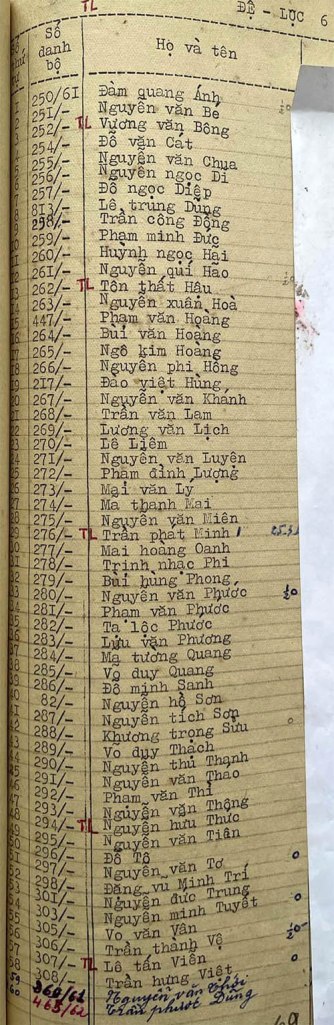 TL ĐỆ - LỤC 6
Số danh bộ Họ và tên
250/61 Đàm quang Ánh
251/- Nguyễn văn Bé
252/- TL Vương văn Bông
254/- Đỗ văn Cát
255/- Nguyễn văn Chua
256/- Nguyễn ngọc Di
257/- Đỗ ngọc Diệp
813/- Lê trung Dũng
258/- Trần công Động
259/- Phạm minh Đức
260/- Huỳnh ngọc Hai
261/- Nguyễn quí Hào
262/- TL Tôn thất Hầu
263/- Nguyễn xuân Hoà
447/- Phạm văn Hoàng
264/- Bùi văn Hoàng
265/- Ngô kim Hoang
266/- Nguyễn phi Hồng
217/- Đào việt Hùng
267/- Nguyễn văn Khánh
268/- Trần văn Lam
269/- Lương văn Lịch
270/- Lê Liêm
271/- Nguyễn văn Luyện
272/- Phạm đình Lượng
273/- Mai văn Lý
274/- Ma thanh Mai
275/- Nguyễn văn Miên
276/- TL Trần phát Minh
277/- Mai hoàng Oanh
278/- Trịnh nhạc Phi
279/- Bùi hung Phong
280/- Nguyễn văn Phước
281/- Phạm văn Phước
282/- Tạ lộc Phước
283/- Lưu văn Phương
284/- Mạ tương Quang
285/- Vo duy Quang
286/- Đỗ minh Sanh
82/- Nguyễn hồ Sơn
287/- Nguyễn tích Sơn
288/- Khương trọng Sửu
289/- Vo duy Thạch
290/- Nguyễn thủ Thạnh
291/- Nguyễn văn Thao
292/- Phạm văn Thi
293/- Nguyễn văn Thông
294/- TL Nguyễn hưu Thức
295/- Nguyễn văn Tiên
296/- Đỗ Tô
297/- Nguyễn văn Tơ
298/- Đặng vu Minh Trí
301/- Nguyễn đưc Trung
303/- Nguyễn minh Tuyết
305/- Vo văn Vân
306/- Trần thành Vệ
307/- TL Lê tấn Viên
308/- Trần hưng Việt
59 360/62 Nguyễn văn Thới
60 463/62 Trần phước Dũng